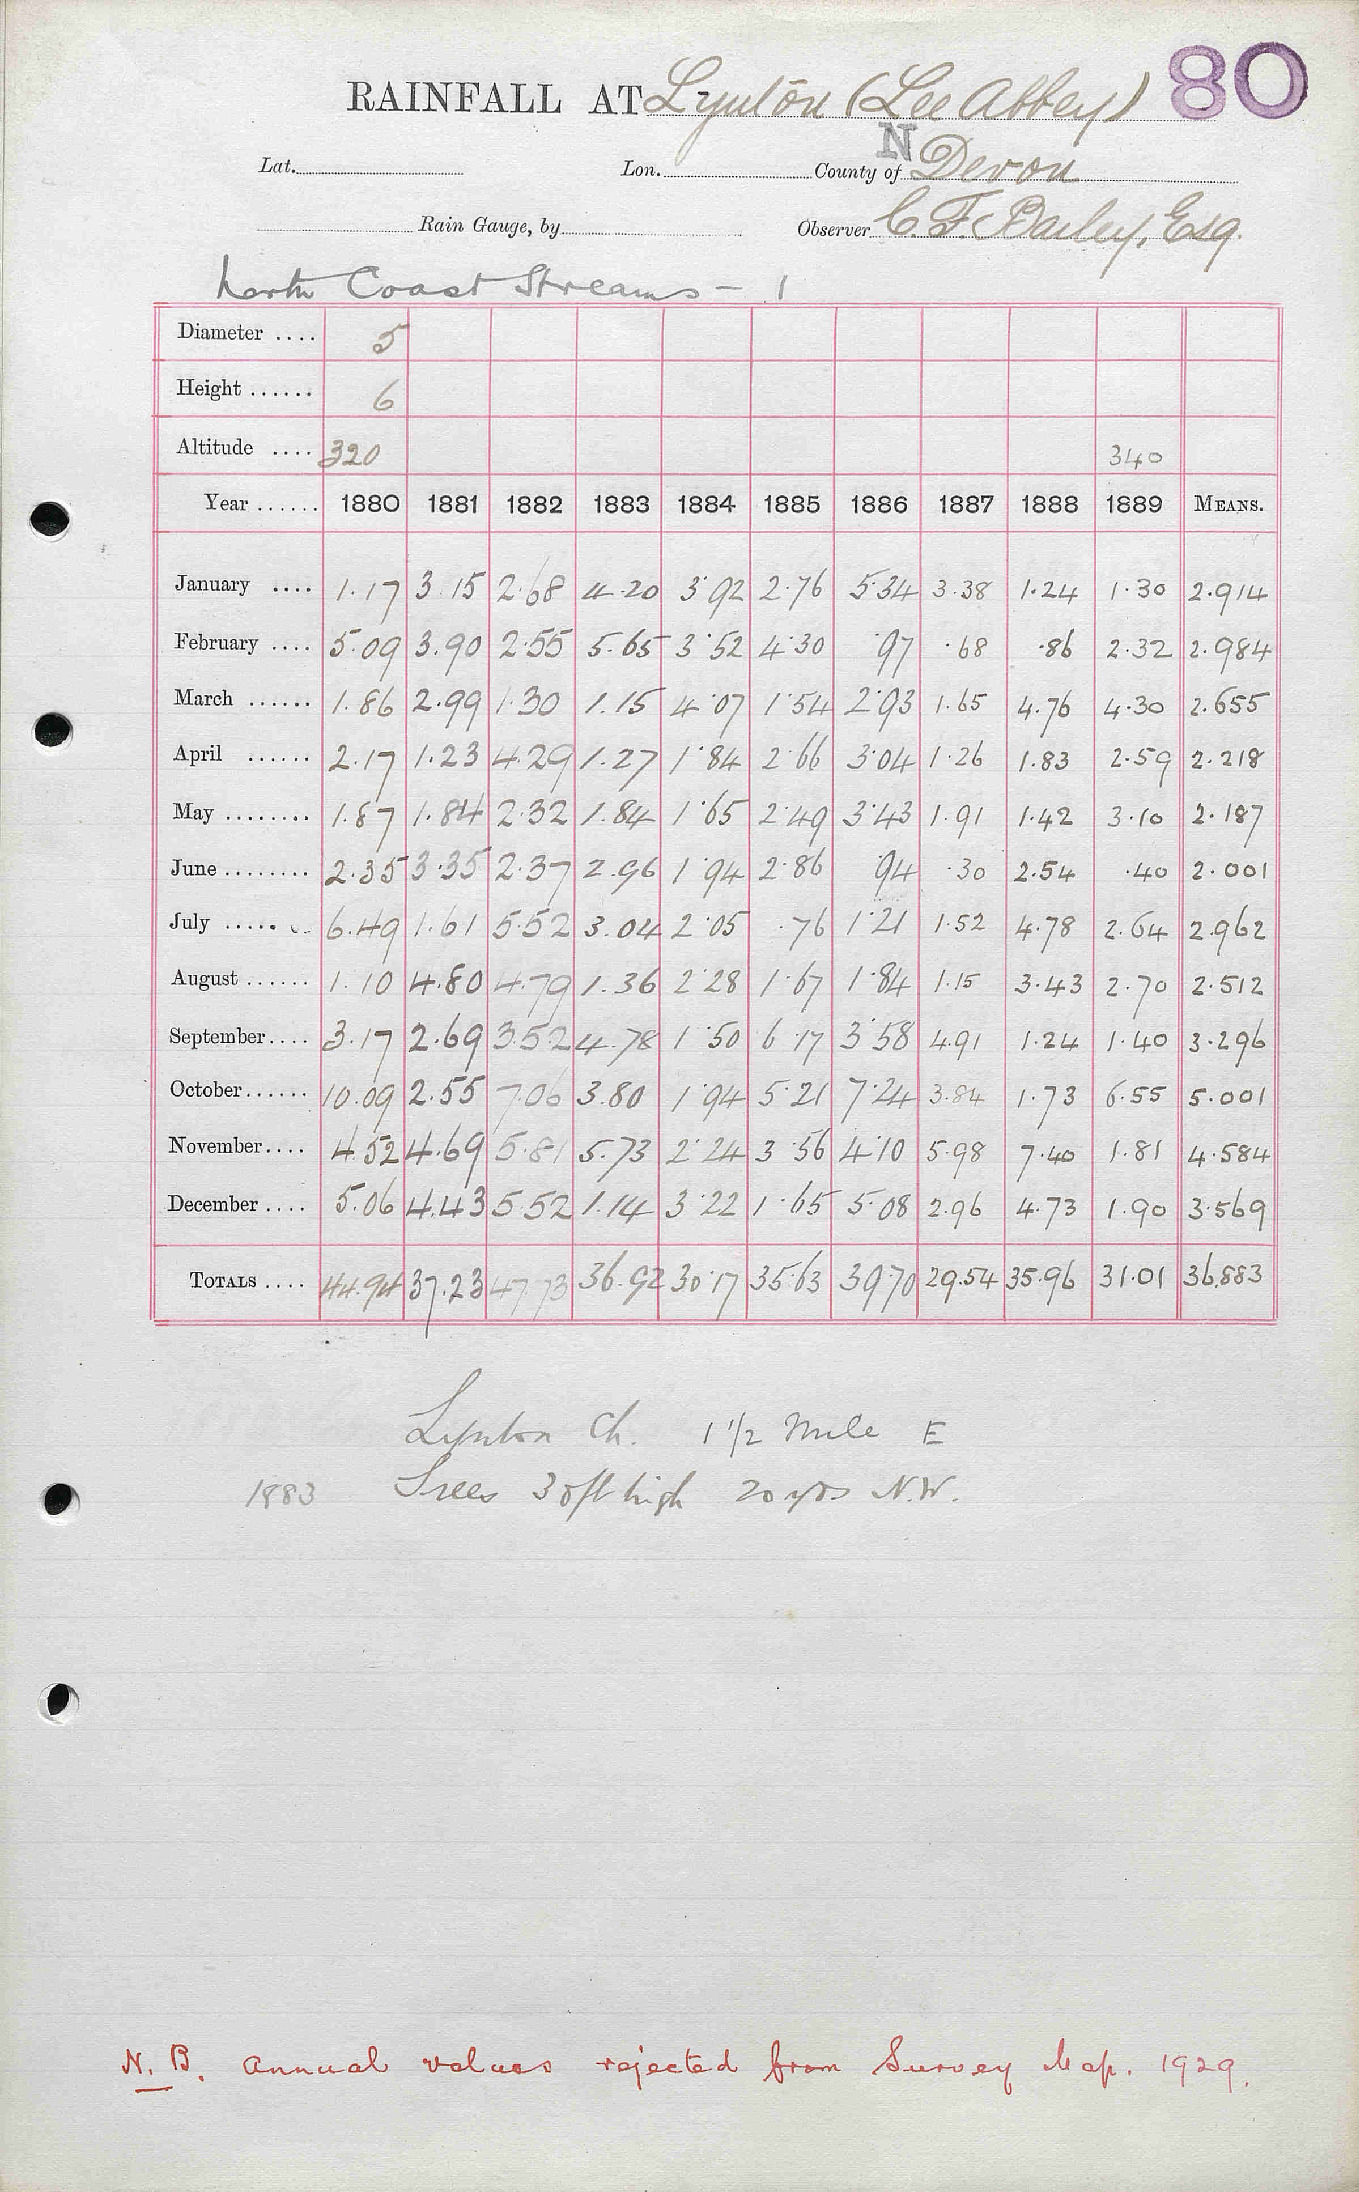 80
RAINFALL AT Lynton (Lee Abbey)
Lat. Lon. County of N Devon
Rain Gauge, by Observer C. F. Bailey, Esq.
North Coast Streams - 1
Diameter .... 5
Height ...... 6
Altitude .... 320 340
Year ...... 1880 1881 1882 1883 1884 1885 1886 1887 1888 1889 MEANS.
January .... 1.17 3.15 2.68 4.20 3.92 2.76 5.34 3.38 1.24 1.30 2.914
February .... 5.09 3.90 2.55 5.65 3.52 4.30 .97 .68 .86 2.32 2.984
March ...... 1.86 2.99 1.30 1.15 4.07 1.54 2.93 1.65 4.76 4.30 2.655
April ...... 2.17 1.23 4.29 1.27 1.84 2.66 3.04 1.26 1.83 2.59 2.218
May ........ 1.87 1.84 2.32 1.84 1.65 2.49 3.43 1.91 1.42 3.10 2.187
June ........ 2.35 3.35 2.37 2.96 1.94 2.86 .94 .30 2.54 .40 2.001
July ........ 6.49 1.61 5.52 3.04 2.05 .76 1.21 1.52 4.78 2.64 2.962
August ...... 1.10 4.80 4.79 1.36 2.28 1.67 1.84 1.15 3.43 2.70 2.512
September .... 3.17 2.69 3.52 4.78 1.50 6.17 3.58 4.91 1.24 1.40 3.296
October ...... 10.09 2.55 7.06 3.80 1.94 5.21 7.24 3.84 1.73 6.55 5.001
November .... 4.52 4.69 5.81 5.73 2.24 3.56 4.10 5.98 7.40 1.81 4.584
December .... 5.06 4.43 5.52 1.14 3.22 1.65 5.08 2.96 4.73 1.90 3.569
TOTALS .... 44.94 37.23 47.73 36.92 30.17 35.63 39.70 29.54 35.96 31.01 36.883
Lynton Ch. 1 1/2 Mile E
1883 Trees 30ft high 20 yds N.W.
N.B. Annual values rejected from Survey Map. 1929.